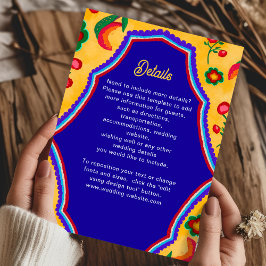 Details
Need to include more details?
Please use this template to add
more information for guests,
such as directions,
transportation,
accommodations, wedding
website,
wishing well or any other
wedding details
you would like to include.
To reposition your text or change
fonts and sizes - click the "edit
using design tool" button.
www.wedding-website.com